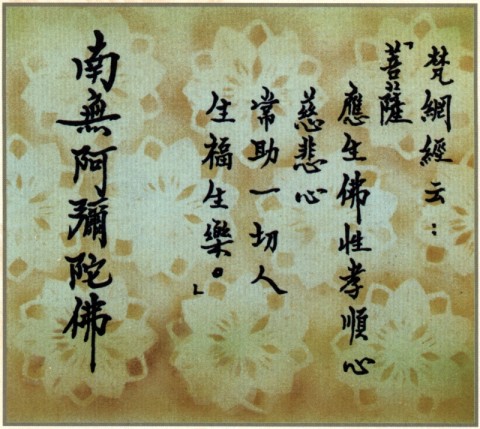 梵網經云：
「菩薩
應生佛性孝順心
慈悲心
常助一切人
生福生樂。」
南無阿彌陀佛